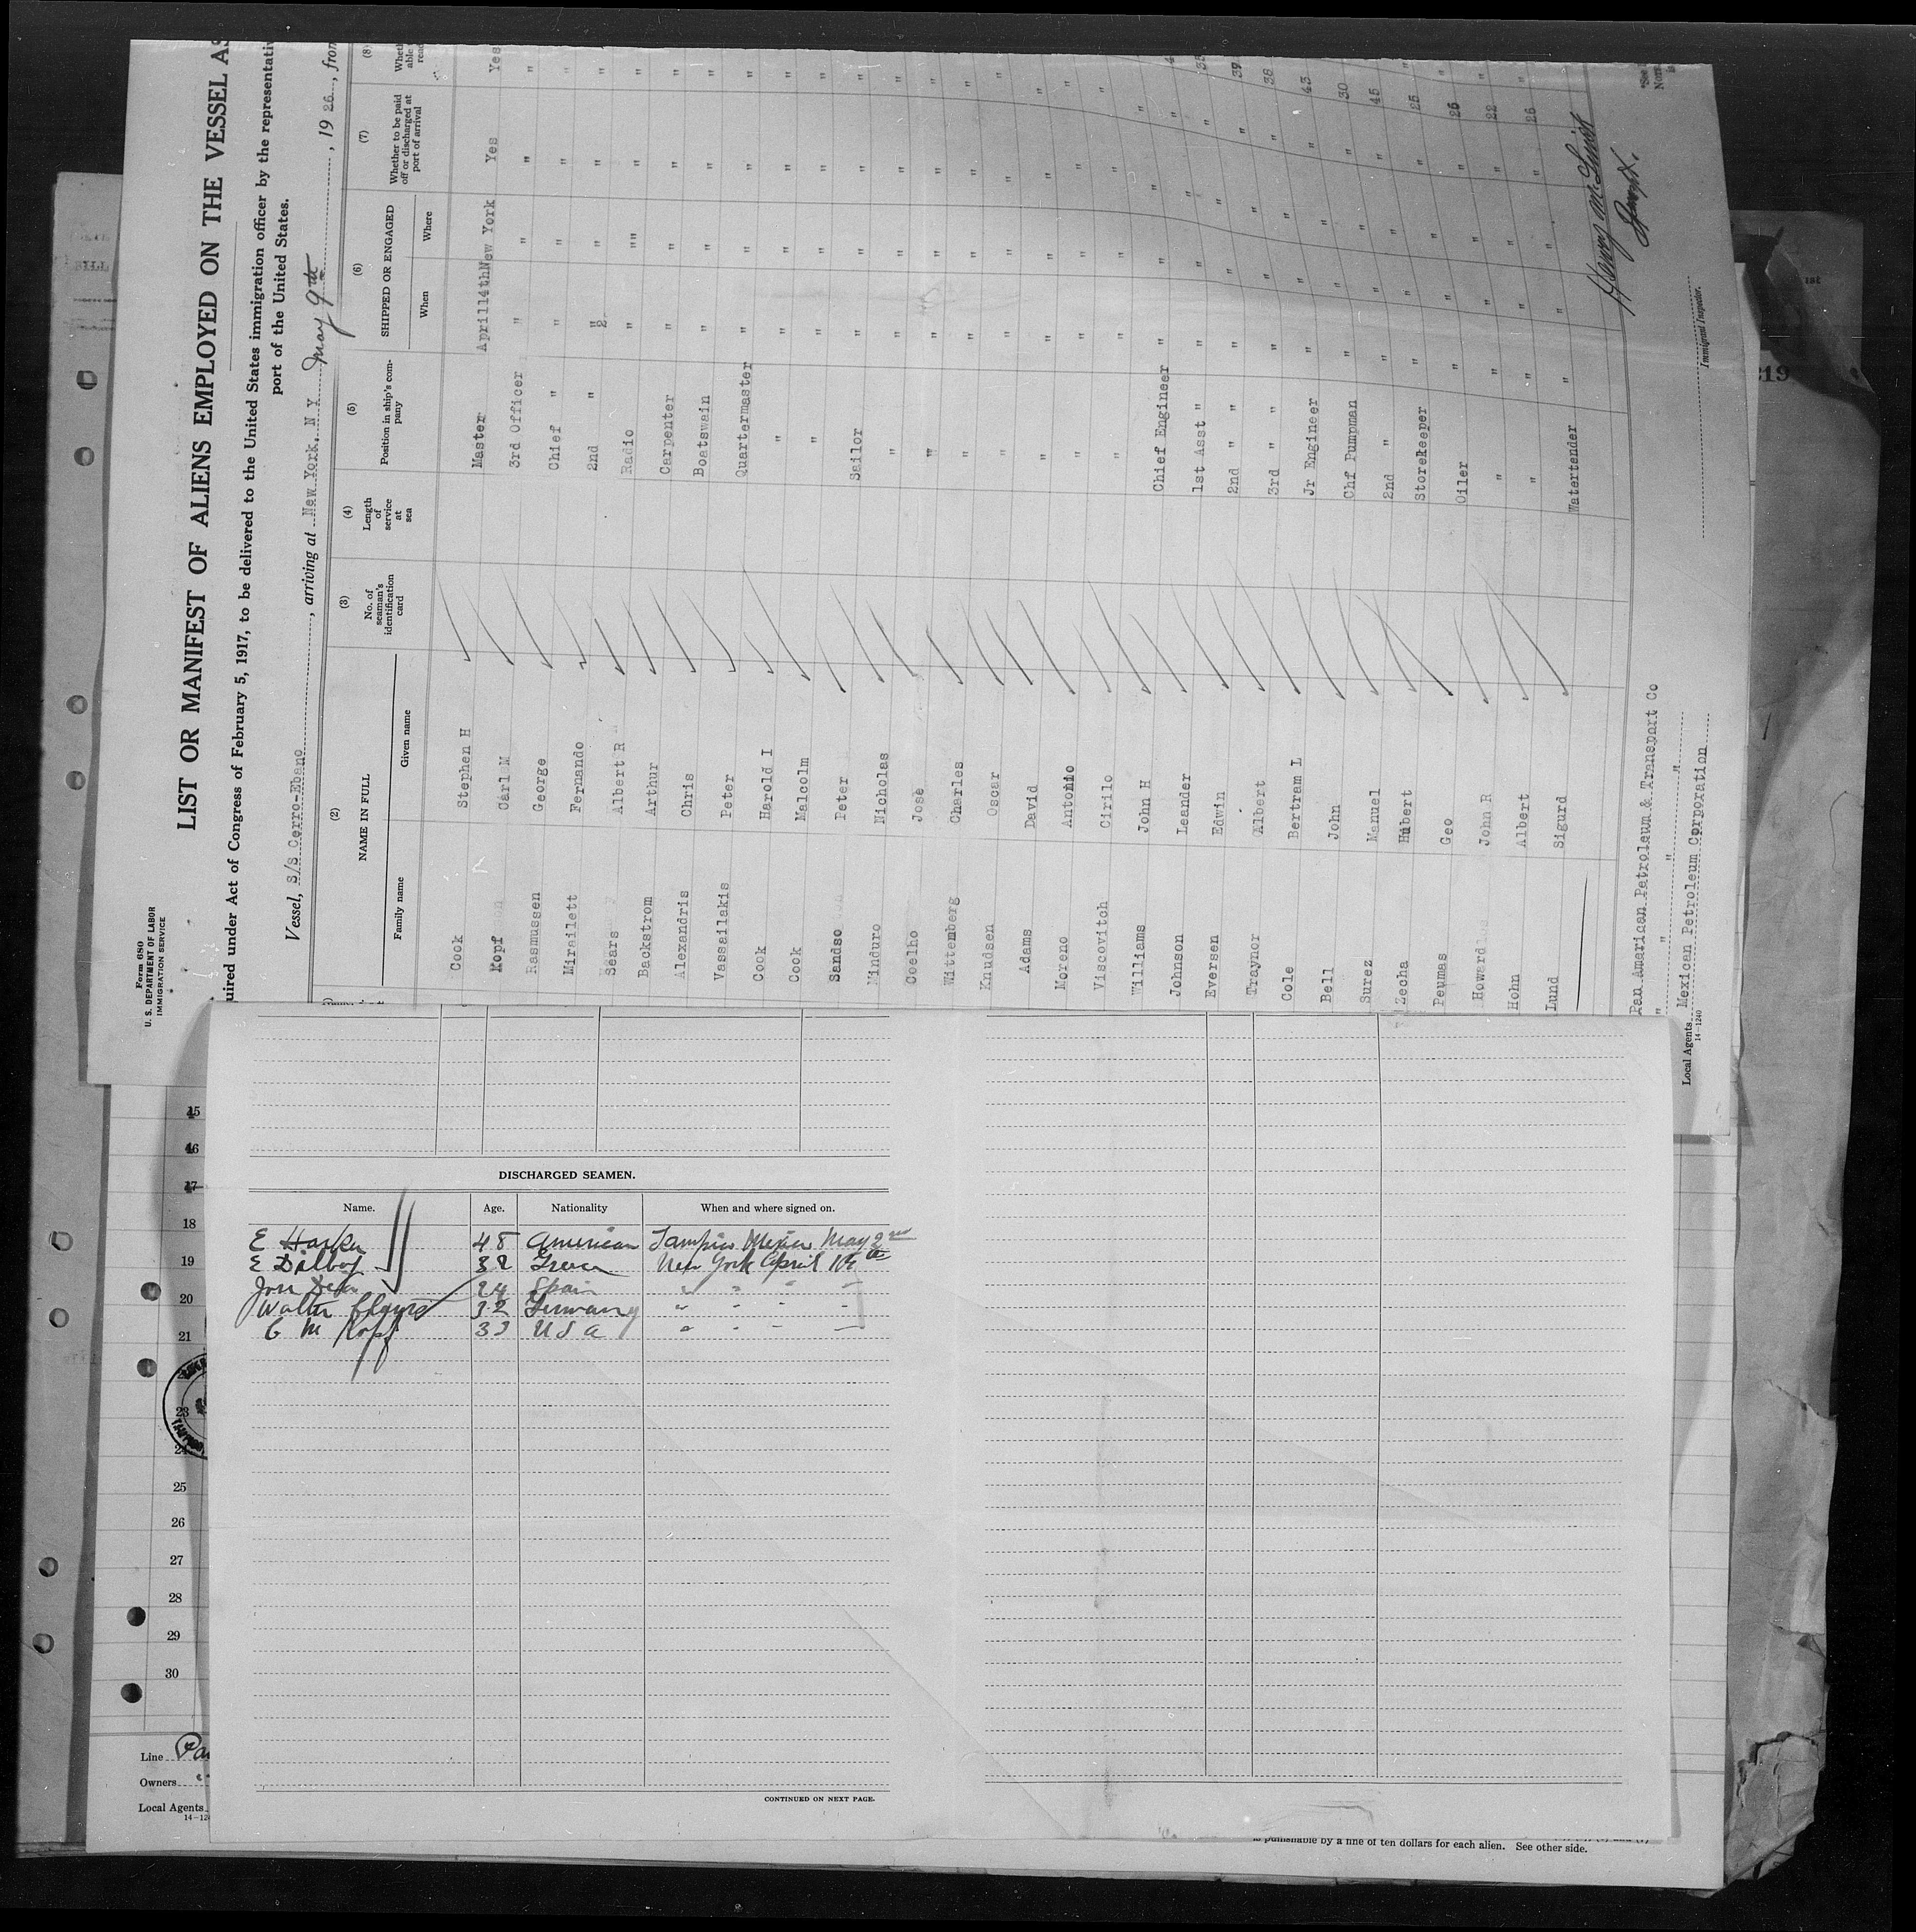 Form 680
U. S. DEPARTMENT OF LABOR
IMMIGRATION SERVICE
LIST OR MANIFEST OF ALIENS EMPLOYED ON THE VESSEL AS
uired under Act of Congress of February 5, 1917, to be delivered to the United States immigration officer by the representativ
port of the United States.
Vessel, S/S Cerro-Ebano, arriving at New York. N Y May 9th, 1926, from
(2) (3) (4) (5) (6) (7) (8)
NAME IN FULL No. of seaman's identification card Length of service at sea Position in ship's company SHIPPED OR ENGAGED Whether to be paid off or discharged at port of arrival
Family name Given name When Where
Cook Stephen H Master April14th New York Yes Yes
Kopf Carl M 3rd Officer " " " "
Rasmussen George Chief " " " " "
Mirailett Fernando 2nd " " " " "
Sears Albert R Radio " "" " "
Backstrom Arthur Carpenter " " " "
Alexandris Chris Boatswain " " " "
Vassailakis Peter Quartermaster " " " "
Cook Harold I " " " " "
Cook Malcolm " " " " "
Sandso Peter Sailor " " " "
Ninduro Nicholas " " " " "
Coelho Jose " " " " "
Wittenberg Charles " " " " "
Knudsen Oscar " " " " "
Adams David " " " " "
Moreno Antonio " " " " "
Viscovitch Cirilo " " " " "
Williams John H Chief Engineer " " " "
Johnson Leander 1st Asst " " " " "
Eversen Edwin 2nd " " " " " " 39
Traynor Albert 3rd " " " " " " 38
Cole Bertram L Jr Engineer " " " " 43
Bell John Chf Pumpman " " " " 30
Surez Manuel 2nd " " " " " 45
Zecha Hubert Storekeeper " " " " 25
Peumas Geo Oiler " " " " 26
Howard John R " " " " " 22
Hohn Albert " " " " " 26
Lund Sigurd Watertender "
Pan American Petroleum & Transport Co
" " " "
Local Agents Mexican Petroleum Corporation
14—1240
Immigrant Inspector.
219
15
16
17
18
19
20
21
24
25
26
27
28
29
30
Line Pa
Owners
Local Agents
DISCHARGED SEAMEN.
Name. Age. Nationality When and where signed on.
E Harker 48 American Tampico Mexico May 2nd
E 38 Greece New York April
Jose 24 Spain " " " "
Walter 32 Germany " " " "
C M Kopf 33 U S A " " " "
CONTINUED ON NEXT PAGE.
is punishable by a fine of ten dollars for each alien. See other side.